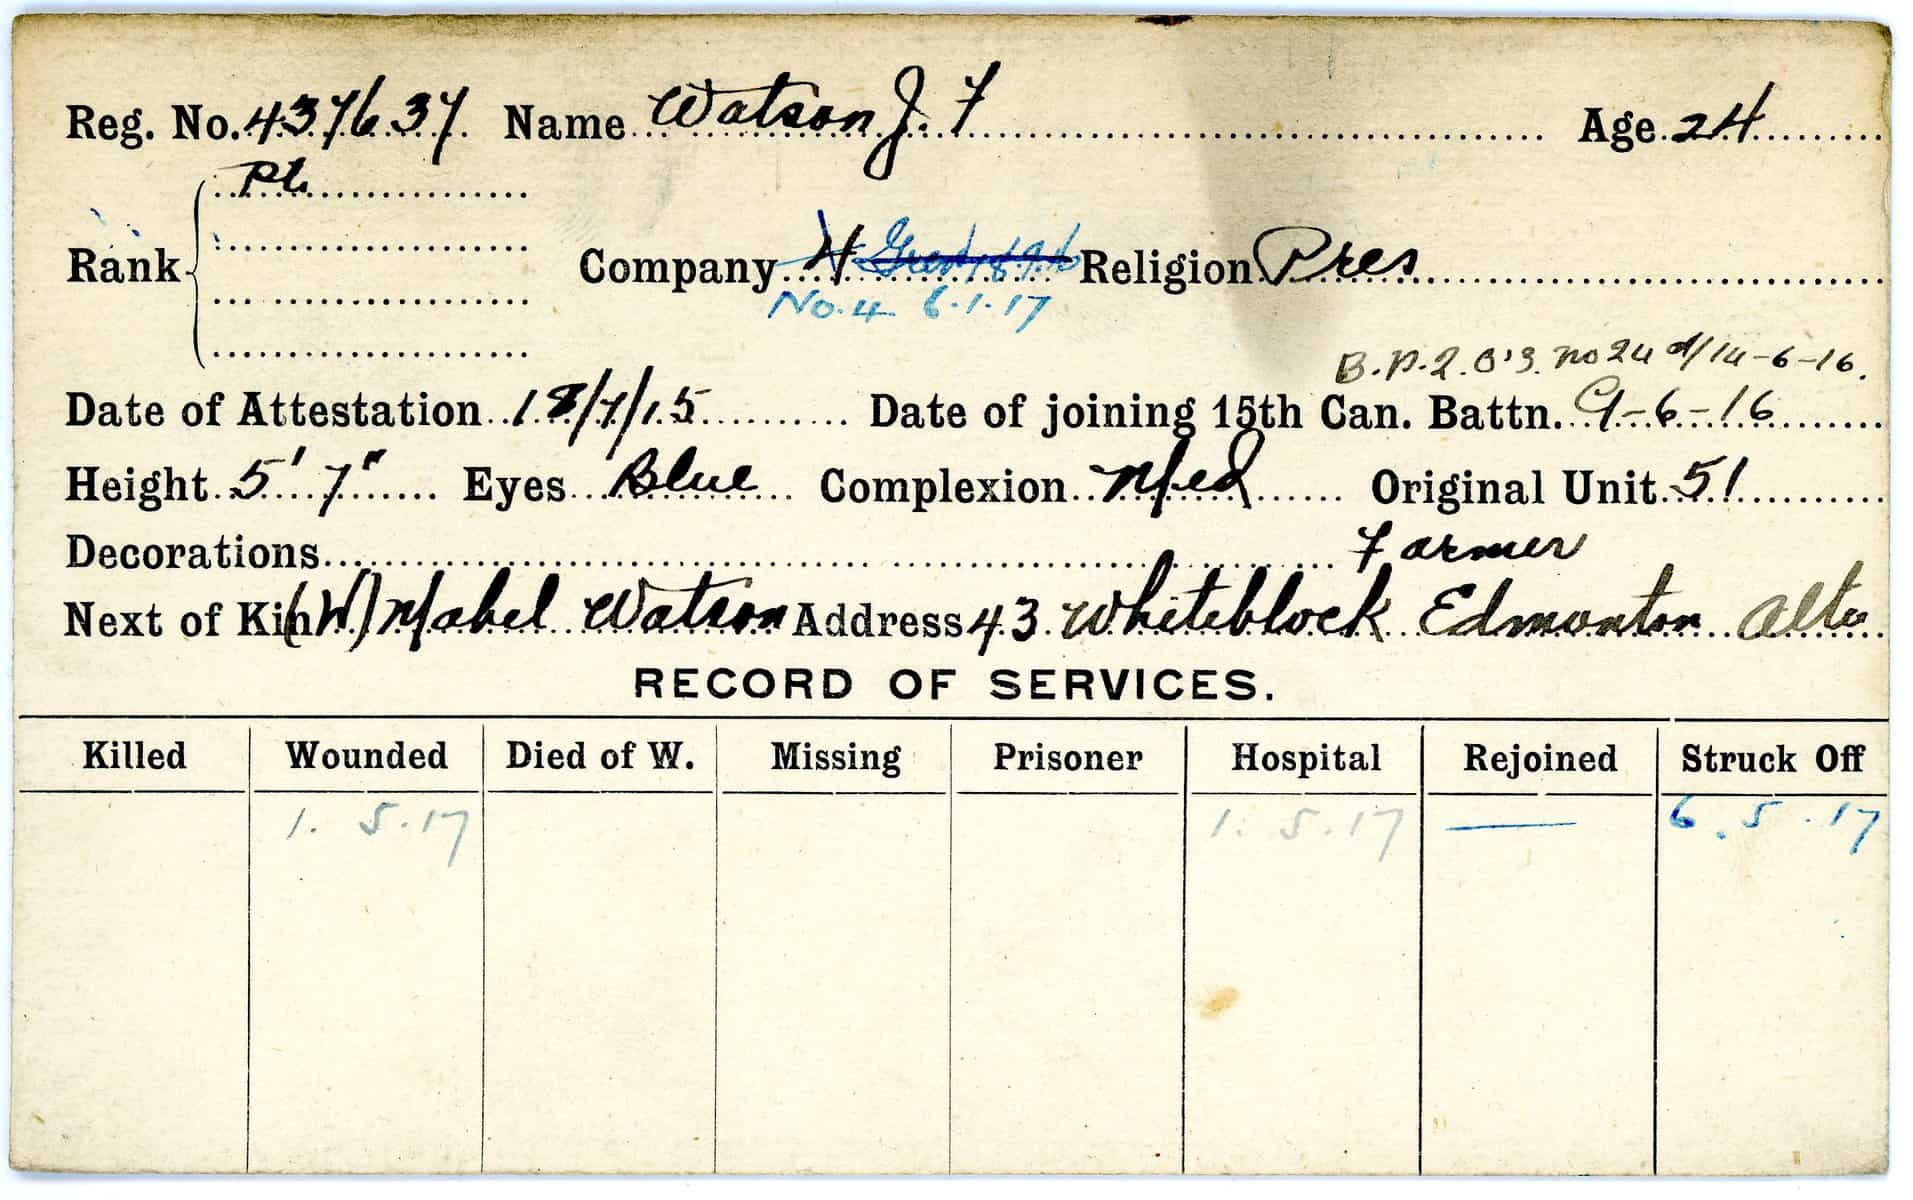 Reg. No. 437637 Name Watson J. F Age 24
Pt.
Rank Company 4 Religion Pres
No. 4 6.1.17
B.P.2.O's. no 24 d/14-6-16.
Date of Attestation 18/7/15 Date of joining 15th Can. Battn. 9-6-16
Height 5' 7" Eyes Blue Complexion Med Original Unit 51
Decorations Farmer
Next of Kin (W) Mabel Watson Address 43 Whiteblock Edmonton Alta
RECORD OF SERVICES.
Killed Wounded Died of W. Missing Prisoner Hospital Rejoined Struck Off
1. 5.17 1. 5.17 — 6.5.17